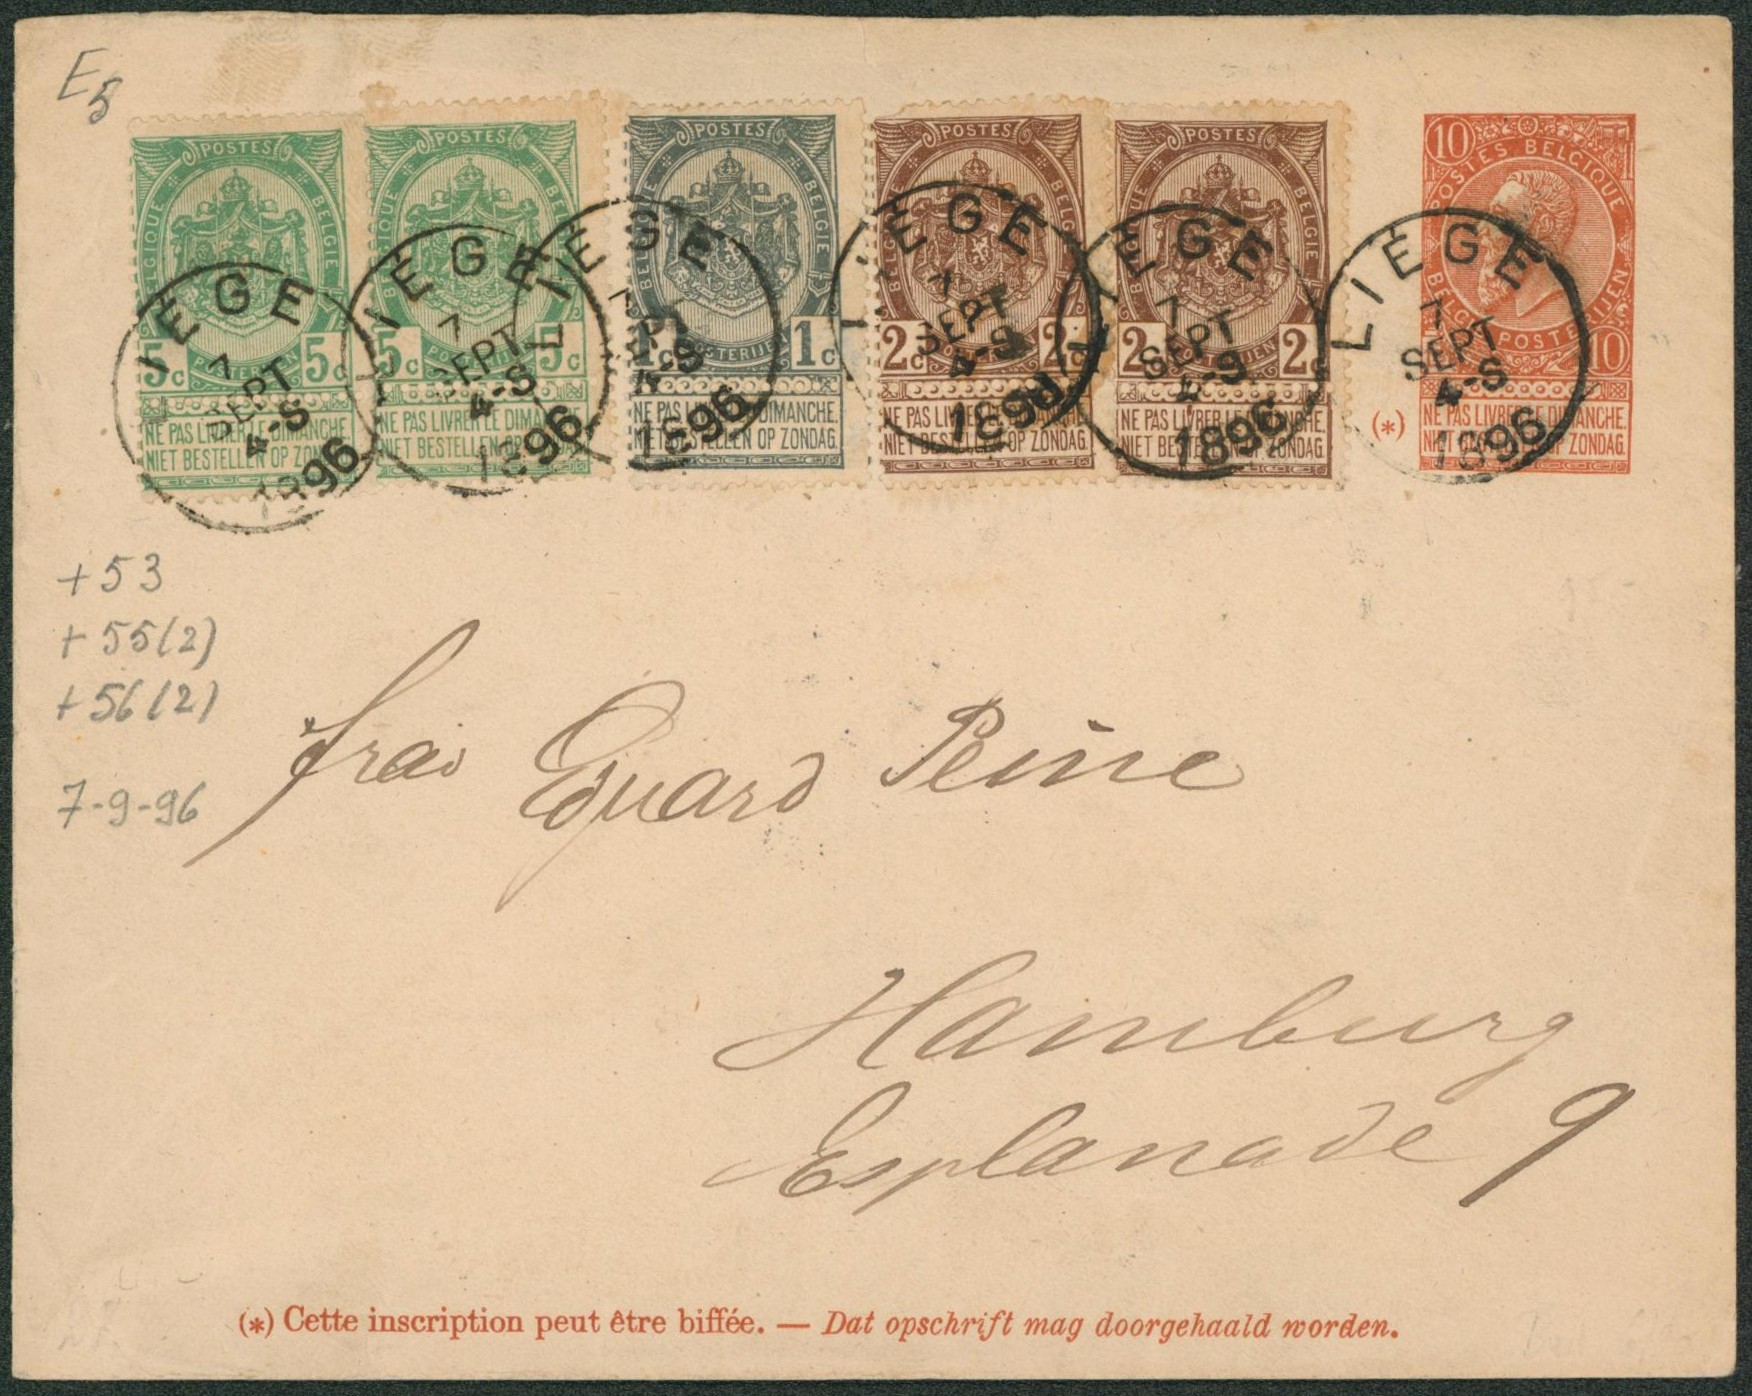 E5
POSTES
BELGIQUE BELGIE
5c 5c
POSTERIJEN
NE PAS LIVRER LE DIMANCHE
NIET BESTELLEN OP ZONDAG
POSTES
BELGIQUE BELGIE
5c 5c
POSTERIJEN
NE PAS LIVRER LE DIMANCHE
NIET BESTELLEN OP ZONDAG
POSTES
BELGIQUE BELGIE
1c 1c
POSTERIJEN
NE PAS LIVRER LE DIMANCHE.
NIET BESTELLEN OP ZONDAG.
POSTES
BELGIQUE BELGIE
2c 2c
POSTERIJEN
NE PAS LIVRER LE DIMANCHE.
NIET BESTELLEN OP ZONDAG.
POSTES
BELGIQUE BELGIE
2c 2c
POSTERIJEN
NE PAS LIVRER LE DIMANCHE.
NIET BESTELLEN OP ZONDAG.
10
POSTES BELGIQUE
BELGIE POSTERIJEN
10
(*)
NE PAS LIVRER LE DIMANCHE.
NIET BESTELLEN OP ZONDAG.
LIÉGE
7
SEPT
4-S
1896
LIÉGE
7
SEPT
4-S
1896
LIÉGE
7
SEPT
4-S
1896
LIÉGE
7
SEPT
4-S
1896
LIÉGE
7
SEPT
4-S
1896
LIÉGE
7
SEPT
4-S
1896
+53
+55(2)
+56(2)
7-9-96
Eduard Peine
Hamburg
Esplanade 9
(*) Cette inscription peut être biffée. — Dat opschrift mag doorgehaald worden.